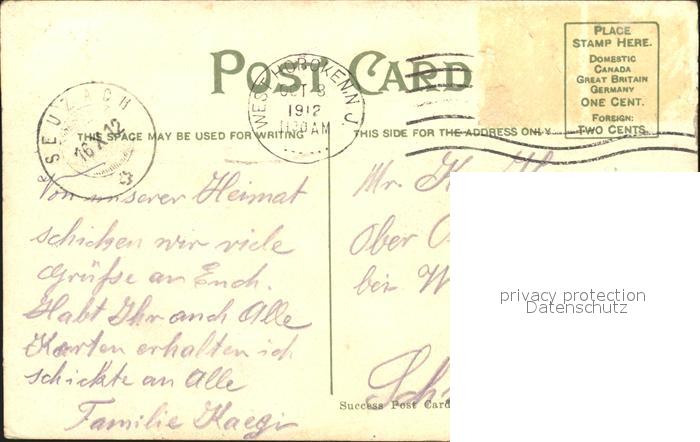 PLACE
STAMP HERE.
DOMESTIC
CANADA
GREAT BRITAIN
GERMANY
ONE CENT.
FOREIGN:
TWO CENTS
POST CARD
WEST HOBOKEN, N.J.
OCT 8
1912
11 30 AM
SEUZACH
16 X 12
THIS SPACE MAY BE USED FOR WRITING
THIS SIDE FOR THE ADDRESS ONLY
Von unserer Heimat
schicken wir viele
Grüfse an Euch.
Habt Ihr auch Alle
Karten erhalten ich
schickte an Alle
Familie Kaegi
Mr.
Ober
bei W
Sch
privacy protection
Datenschutz
Success Post Card